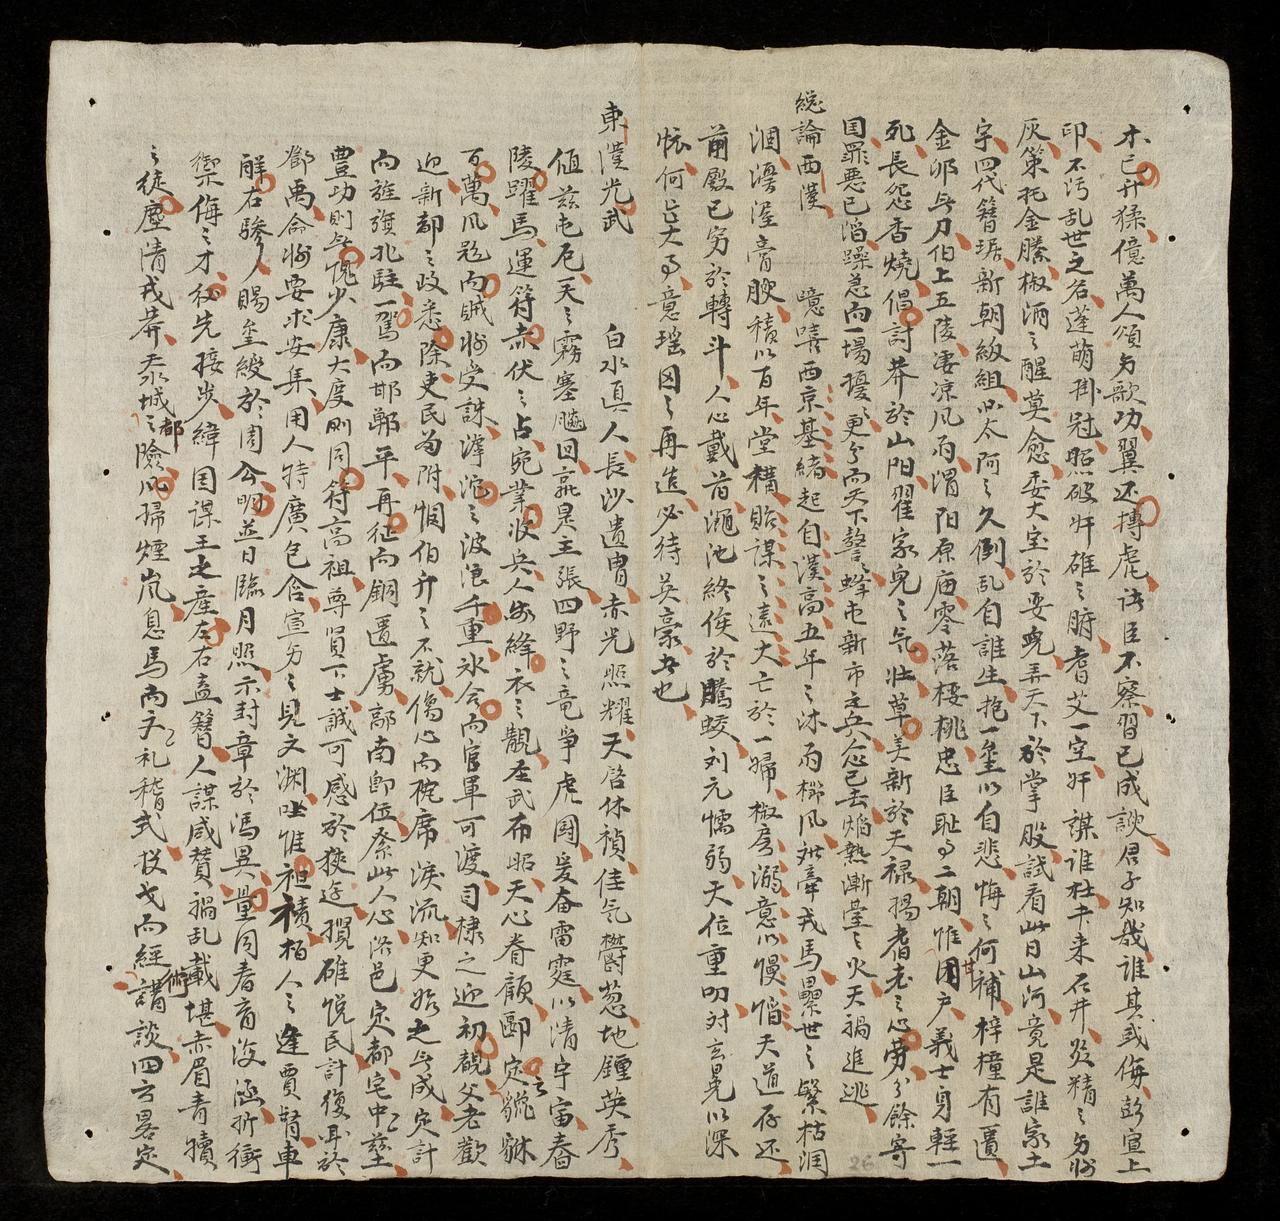 才已廾猱億萬人頌与歌功翼还摶虎諸臣不察習已成諛君子知幾誰其或侮彭宣上
印不污乱世之名逢萌掛冠照破奸雄之腑耆艾一空奸謀誰杜卡来石井炎精之与
灰策托金縢椒酒之醒莫愈委大宝於嬰児弄天下於掌股試看此日山河竟是誰家土
字四代簪琚新朝紱組㕥太阿之久倒乱自誰生抱一璽以自悲悔之何補梓橦有匱
金卯无刀伯上五陵凄凉風雨渭阳原庙零落桜桃忠臣耻事二朝惟闭户義士身輕一
死長怨香燒倡討莽於山阳翟家児之気壮草美新於天禄揚耆老之心劳分餘寄
囯罪悪已滔躁急而一場擾更分而天下警蜂屯新市之兵心已去焔熱漸臺之火天禍進逃
緫論西漢 噫嘻西京基緒起自漢高五年之沐雨櫛風躬牽戎馬累世之繁枯润
涸濡渥膏腴積以百年堂構貽謀之遠大亡於一婦椒房溺意以慢慆天道存还
前殿已穷於轉斗人心戴旧澠池終俟於騰蛟刘元懦弱天位重叨对玄晃以深
怯何吉大事意瑤图之再造必待英豪者也
東漢光武 白水真人長沙遺胄赤光照耀天啓休禎佳気欝葱地鍾英秀
值茲屯厄天之霧塞飈回孰是主張四野之竜争虎闘爰奋雷霆以清宇宙舂
陵躍馬運符赤伏之占宛業收兵人安絳衣之覩圣武布昭天心眷顧郾定貔貅
百萬風驅而贼将受誅滹沱之波浪千重氷合而官軍可渡司棣之迎初覩父老歡
迎新都之政悉除吏民多附悃伯升之不就傷心而枕席淚流知更始之无成定计
而旌旗北駐一駕而邯鄲平再征而銅匱虜鄗南即位系此人心洛邑定都宅中茲
豊功則无愧少康大度則同符高祖尊賢下士誠可感於狹逆攬雄悦民計復耳於
鄧禹命将要求安集用人特廣包含宣与之見文渊坐惟袒積栢人之逢賈督車
觧右驂賜玺綬於周公明並日臨月照示封章於馮異量同春育海涵折衝
禦侮之才似先接步緯国謀王之産左右盍簪人謀咸賛禍乱戴堪赤眉青犢
之徒塵清戎莽天水城都之險風掃煙嵐息馬而文礼稽式投戈而經講術談四方畧定